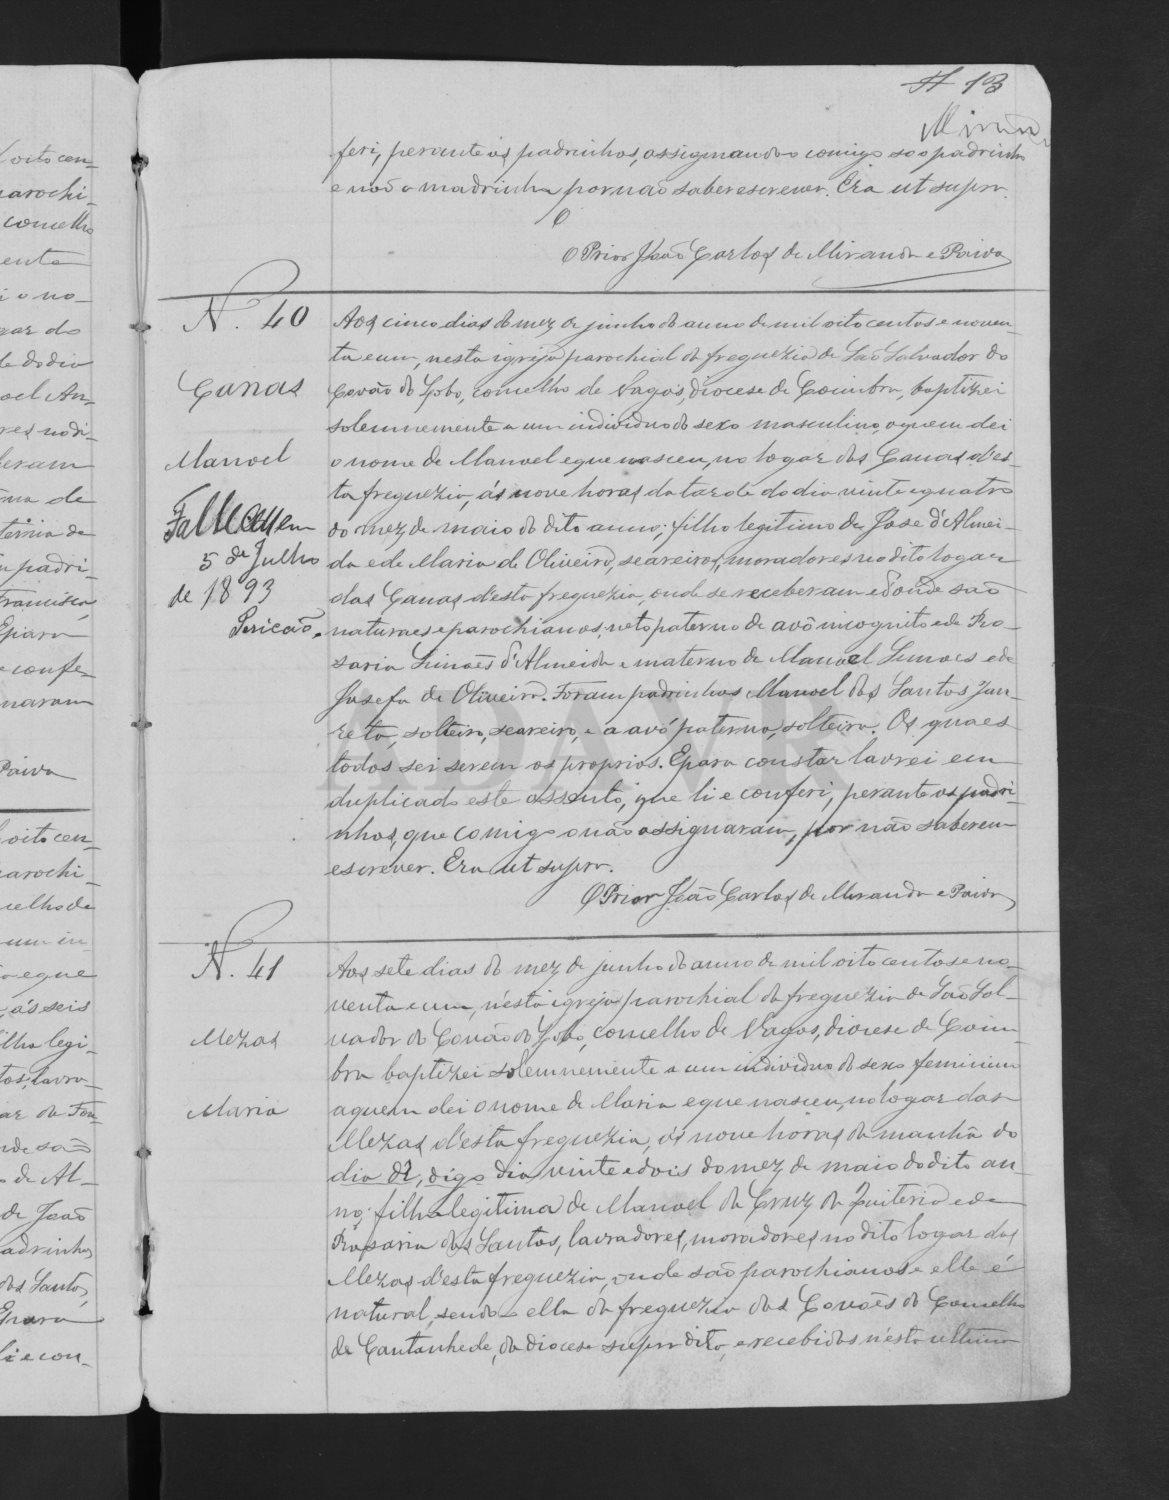 13
feri, perante os padrinhos, assignando comigo só o padrinho
e não a madrinha por não saber escrever. Era ut supra.
O Prior João Carlos de Miranda e Paiva
N. 40
Canas
Manoel
Falleceu em
5 de Julho
de 1893
Aos cinco dias do mez de junho do anno de mil oito centos e noven-
ta e um, nesta igreja parochial da freguezia de São Salvador do
Covão do Lobo, concelho de Vagos, diocese de Coimbra, baptizei
solemnemente a um individuo do sexo masculino, a quem dei
o nome de Manoel e que nasceu, no logar das Canas d'es-
ta freguezia, ás nove horas da tarde do dia vinte e quatro
do mez de maio do dito anno; filho legitimo de Jose d'Almei-
da e de Maria de Oliveira, seareiros, moradores no dito logar
das Canas d'esta freguezia, onde se receberam e d'onde são
naturaes e parochianos; neto paterno de avô incognito e de Ro-
saria Simões d'Almeida e materno de Manoel Simoes e de
Josefa de Oliveira. Foram padrinhos Manoel dos Santos Jan-
reta, solteiro, seareiro, e a avó paterna, solteira. Os quaes
todos sei serem os proprios. E para constar lavrei em
duplicado este assento, que li e conferi, perante os padri-
nhos, que comigo não assignaram, por não saberem
escrever. Era ut supra.
O Prior João Carlos de Miranda e Paiva
N. 41
Mezas
Maria
Aos sete dias do mez de junho do anno de mil oito centos e no-
venta e um, n'esta igreja parochial da freguezia de São Sal-
vador do Covão do Lobo, concelho de Vagos, diocese de Coim-
bra baptizei solemnemente a um individuo do sexo feminino
a quem dei o nome de Maria e que nasceu, no logar das
Mezas d'esta freguezia, ás nove horas da manhã do
dia de, digo dia vinte e dois do mez de maio do dito an-
no; filha legitima de Manoel da Cruz da Quiteria e de
Rosaria dos Santos, lavradores, moradores no dito logar das
Mezas d'esta freguezia, onde são parochianos e elle é
natural, sendo ella da freguezia dos Covões do Concelho
de Cantanhede, da diocese supra dita, e recebidos n'esta ultima
ADAVR